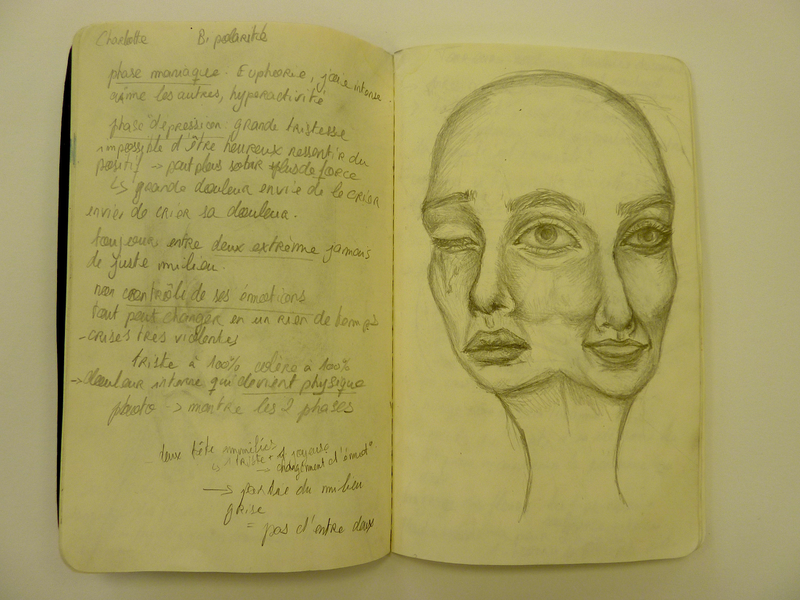 Charlotte Bipolarité
phase maniaque : Euphorie, joie intense
aime les autres, hyperactivité
phase depression : grande tristesse
impossible d'être heureux ressentir du
positif → peut plus sortir plus de force
↳ grande douleur envie de le crier
envie de crier sa douleur.
toujours entre deux extrême jamais
de juste milieu.
non contrôle de ses émotions
tout peut changer en un rien de temps
- crises très violentes
triste à 100% colère à 100%
→ douleur interne qui devient physique
photo → montre les 2 phases
deux tête
1 triste + 1 joyeuse
→ changement d'émot°
→ partie du milieu
grise
= pas d'entre deux